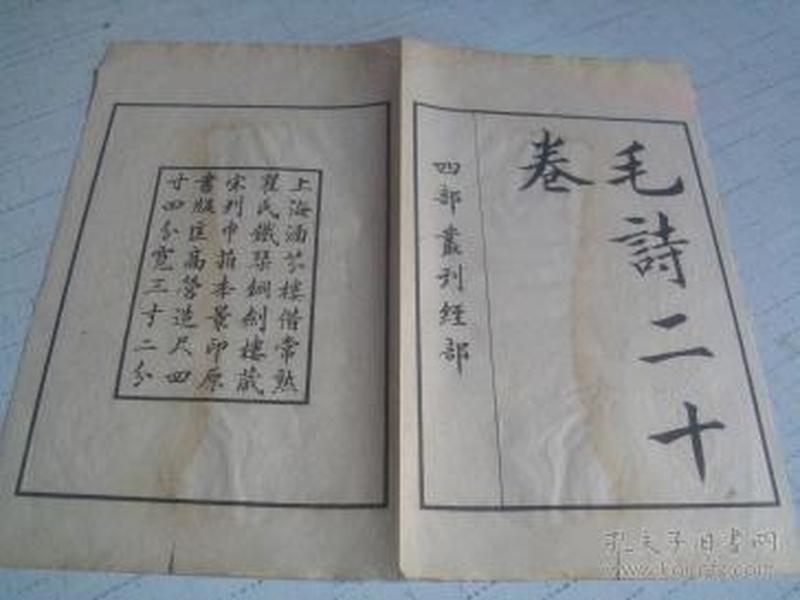 毛詩二十
卷
四部叢刊經部
上海涵芬樓借常熟
瞿氏鐵琴銅劍樓藏
宋刊巾箱本景印原
書版匡高營造尺四
寸四分寬三寸二分
孔夫子旧书网